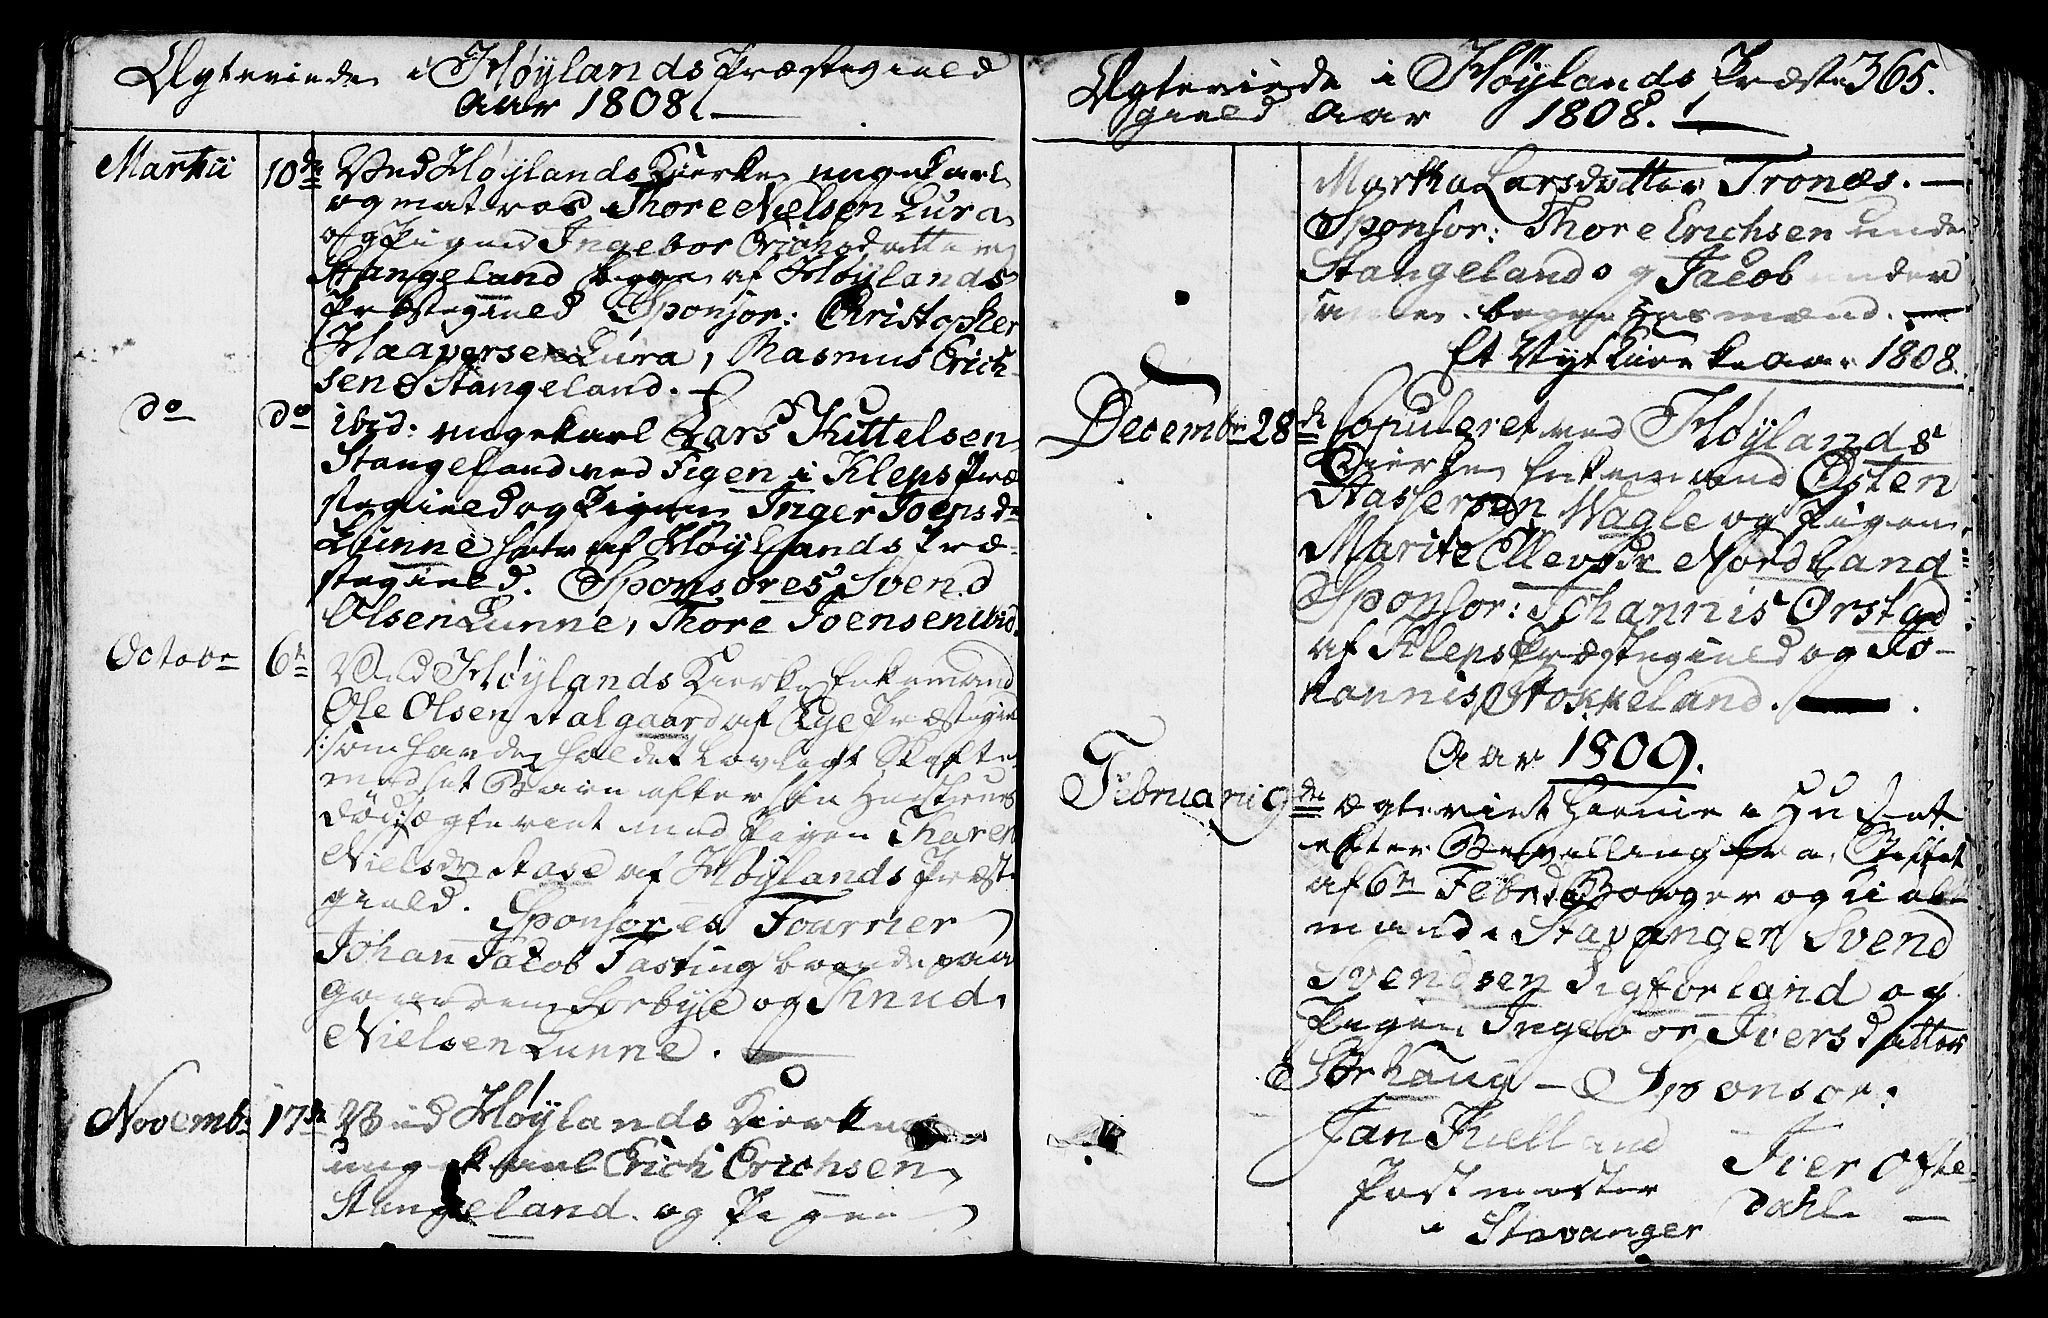 Ægteviede i Høylands Præstegield
Aar 1808.
Martii 10de Ved Høylands Kierke ungekarl
og matros Thore Nielsen Lura
og Pigen Ingebor Erichsdatter
Stangeland begge af Høylands
Præstegield Sponsor: Christopher
Haaversen Lura, Rasmus Erich-
sen Stangeland.
do do ibid: ungekarl Lars Kittelsen
Stangeland ved Figen i Kleps Præ
stegield og Pigen Inger Joensdr
Lunne her af Høylands Præ-
stegield. Sponsores, Svend
Olsen Lunne, Thore Joensen ibid.
Octobr 6te Ved Høylands Kierke Enkemand
Ole Olsen Aalgaard af Præstegie
som havde holdet Lovligt Skifte
med set Barn efter sin Hustrues
død, ægteviet med Pigen Tharen
Nielsdr Aase af Høylands Præste
gield. Sponsores Fourrier
Johan Jacob Tasting boende paa
gaarden Sorbye og Knud
Nielsen Lunne.
Novembr 17de Ved Høylands Kierke
ungekarl Erich Erichsen
Stangeland og Pigen
Ægteviede i Høylands Præste 365.
gield Aar 1808.
Martha Larsdatter Tronæs.
Sponsor: Thore Erichsen under
Stangeland og Jacob under
begge Husmænd.
Et Nyt Kirke Aar 1808.
Decembr 28de Copuleret ved Høylands
Kierke Enkemand Østen
Aassersen Wagle og Pigen
Marite Ellevsdr Nordland
Sponsor: Johannis Orstad
af Kleps Præstegield og Jo-
hannis Stokkeland.
Aar 1809.
Februarii 9de Ægteviet hiemme i Huset
efter Bevilling fra Stiftet
af 6te Febr: Borger og
mand i Stavanger Svend
Svendsen Sigforland og
Pigen Ingebor Iversdatter
Sørhaug - Sponsor:
Jan Kielland Iver Ofte-
Postmester dahl
i Stavanger